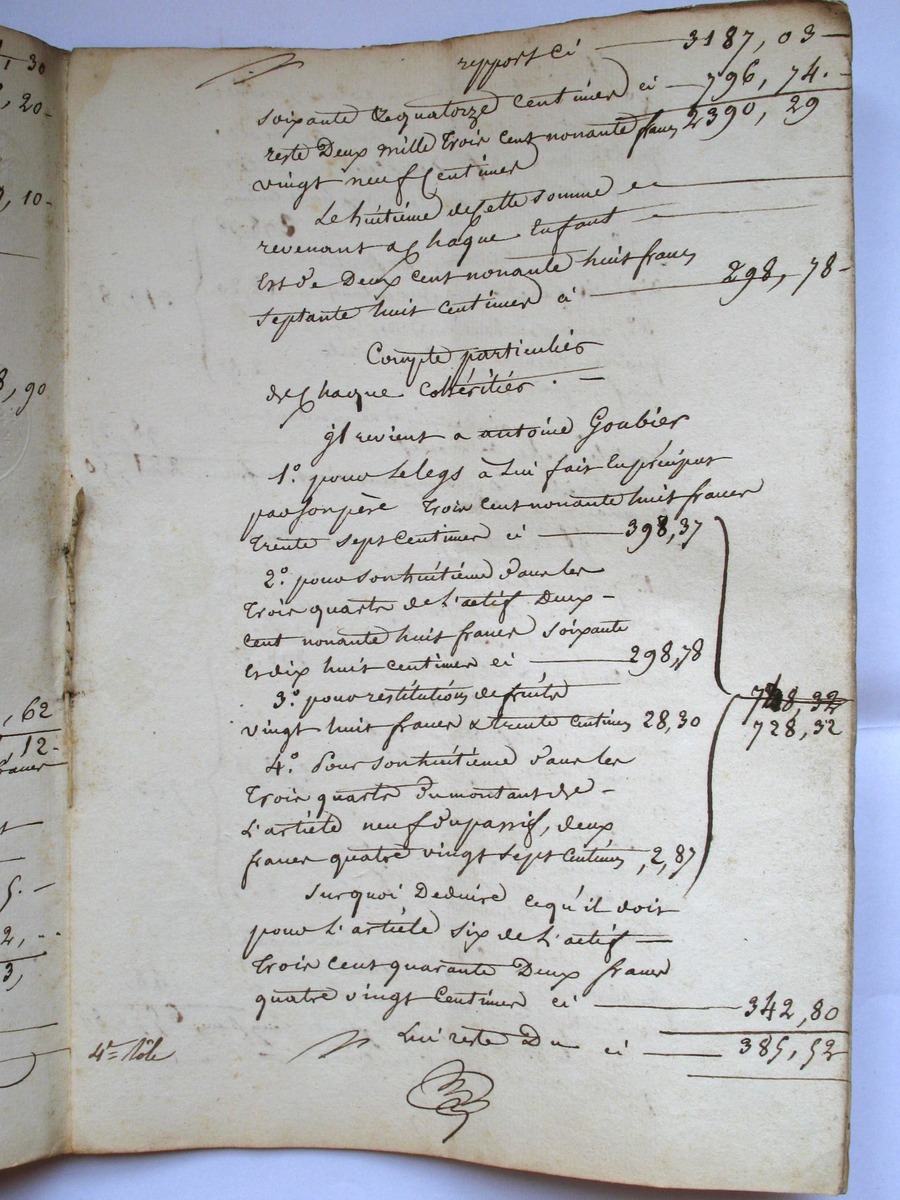 , 30
, 20-
, 10-
8, 90
, 62
, 12-
francs
5. —
2, -.
3,
report ci — 3187, 03 —
soixante & quatorze Centimes ci — 796, 74. -
reste Deux mille Trois Cent nonante francs 2390, 29
vingt neuf Centimes
Le huitième de Cette somme
revenant a Chaque Enfant
Est de Deux Cent nonante huit francs
septante huit Centimes ci — 298, 78-
Compte particulier
de Chaque Cohéritier . —
il revient a antoine Goubier
1° pour Le legs à Lui fait En préciput
par son père Trois Cent nonante huit francs
Trente sept Centimes ci — 398,37
2° pour son huitième dans les
Trois quarts de L'actif Deux -
Cent nonante huit francs soixante
Et dix huit Centimes ci — 298,78
3° pour restitution de fruits
vingt huit francs & trente Centimes 28,30
728,32
4° Pour son huitième dans les
Trois quarts Du montant de -
L'article neuf du passif, deux
francs quatre vingt sept Centimes ,2,87
Surquoi Deduire ce qu'il doit
pour L'article six de L'actif —
Trois Cent quarante Deux francs
quatre vingt Centimes ci — 342,80
Lui reste Du ci — 385,52
4e rôle